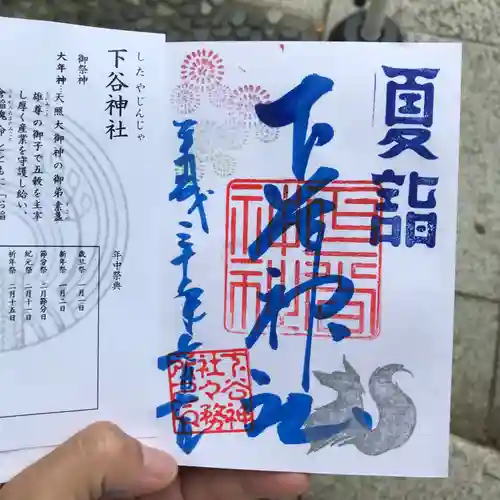 夏詣
下谷神社
下谷神社
下谷神
社々務
所
したやじんじゃ
下谷神社
御祭神
大年神…天照大御神の御弟素盞
雄尊の御子で五穀を主宰
し厚く産業を守護し給い、
年中祭典
歳旦祭 一月一日
新年祭 一月二日
節分祭 二月節分日
紀元祭 二月十一日
祈年祭 二月十五日